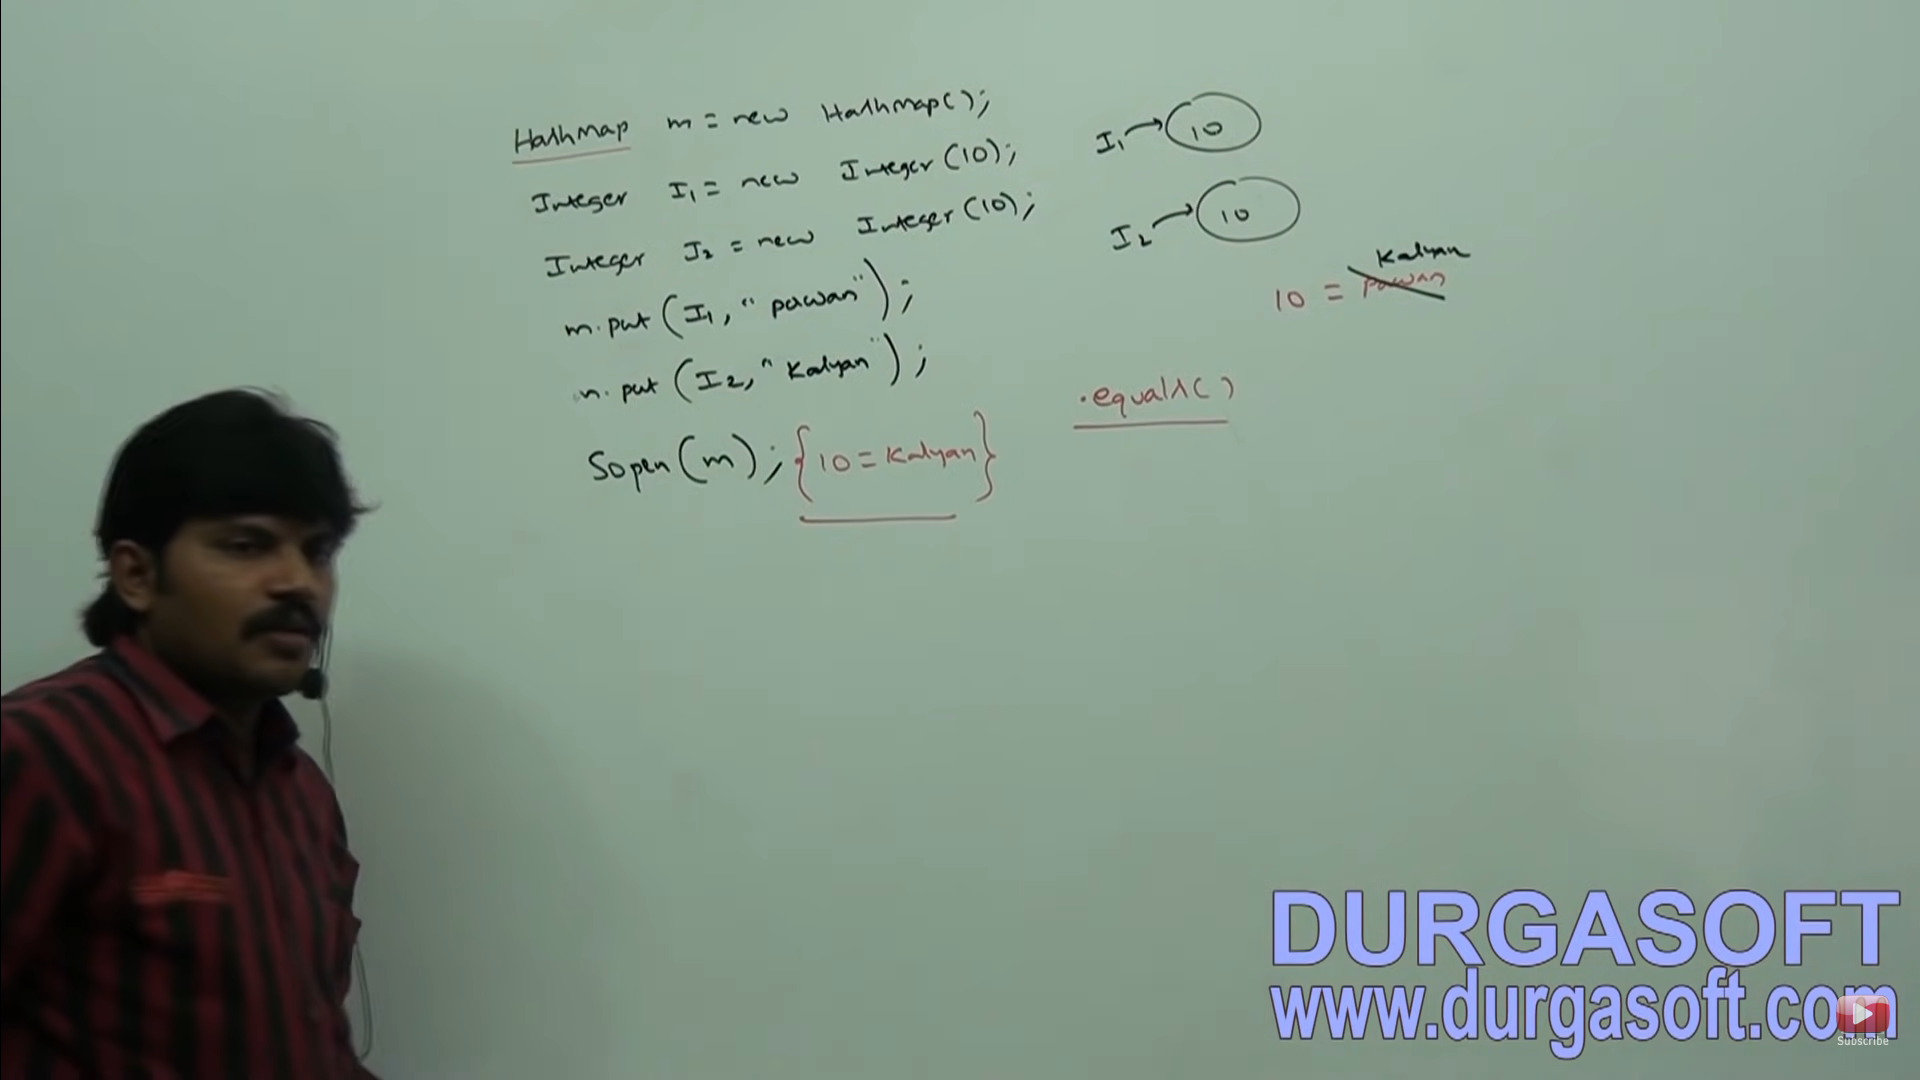 HashMap m = new HashMap();
Integer I1 = new Integer(10);
Integer I2 = new Integer(10);
m.put(I1, "pawan");
m.put(I2, "Kalyan");
Sopln(m); {10=Kalyan}
I1 → 10
I2 → 10
Kalyan
10 = pawan
.equals()
DURGASOFT
www.durgasoft.com
Subscribe